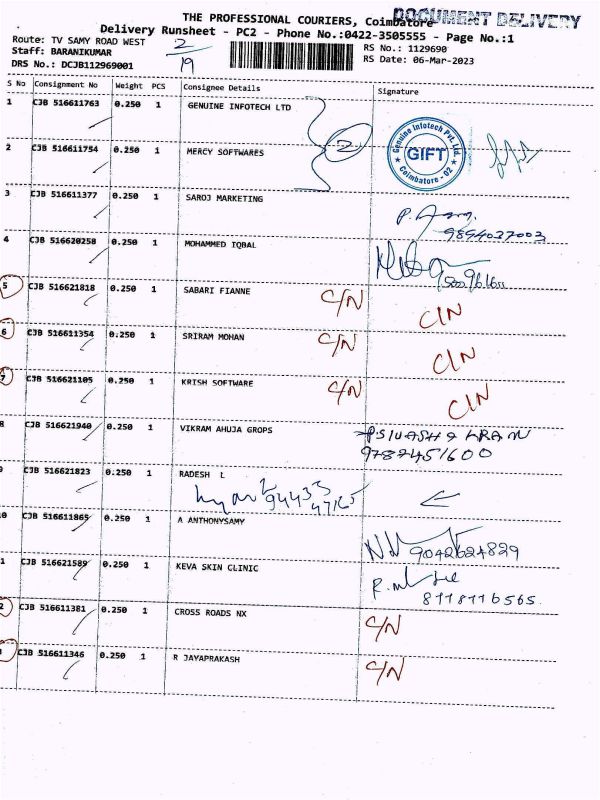 THE PROFESSIONAL COURIERS, Coimbatore
DOCUMENT DELIVERY
Delivery Runsheet - PC2 - Phone No.:0422-3505555 - Page No.:1
Route: TV SAMY ROAD WEST
RS No.: 1129690
Staff: BARANIKUMAR
RS Date: 06-Mar-2023
DRS No.: DCJB112969001
2/19
S No Consignment No Weight PCS Consignee Details Signature
1 CJB 516611763 0.250 1 GENUINE INFOTECH LTD
2
Genuine Infotech Pvt. Ltd.
GIFT
Coimbatore - 02
2 CJB 516611754 0.250 1 MERCY SOFTWARES
3 CJB 516611377 0.250 1 SAROJ MARKETING
9894037003
4 CJB 516620258 0.250 1 MOHAMMED IQBAL
5 CJB 516621818 0.250 1 SABARI FIANNE C/N C/N
6 CJB 516611354 0.250 1 SRIRAM MOHAN C/N C/N
7 CJB 516621105 0.250 1 KRISH SOFTWARE C/N C/N
8 CJB 516621940 0.250 1 VIKRAM AHUJA GROPS
9787451600
9 CJB 516621823 0.250 1 RADESH L
94433
47165
0 CJB 516611865 0.250 1 A ANTHONYSAMY
9042624829
1 CJB 516621589 0.250 1 KEVA SKIN CLINIC
8778776565
2 CJB 516611381 0.250 1 CROSS ROADS NX C/N
CJB 516611346 0.250 1 R JAYAPRAKASH C/N